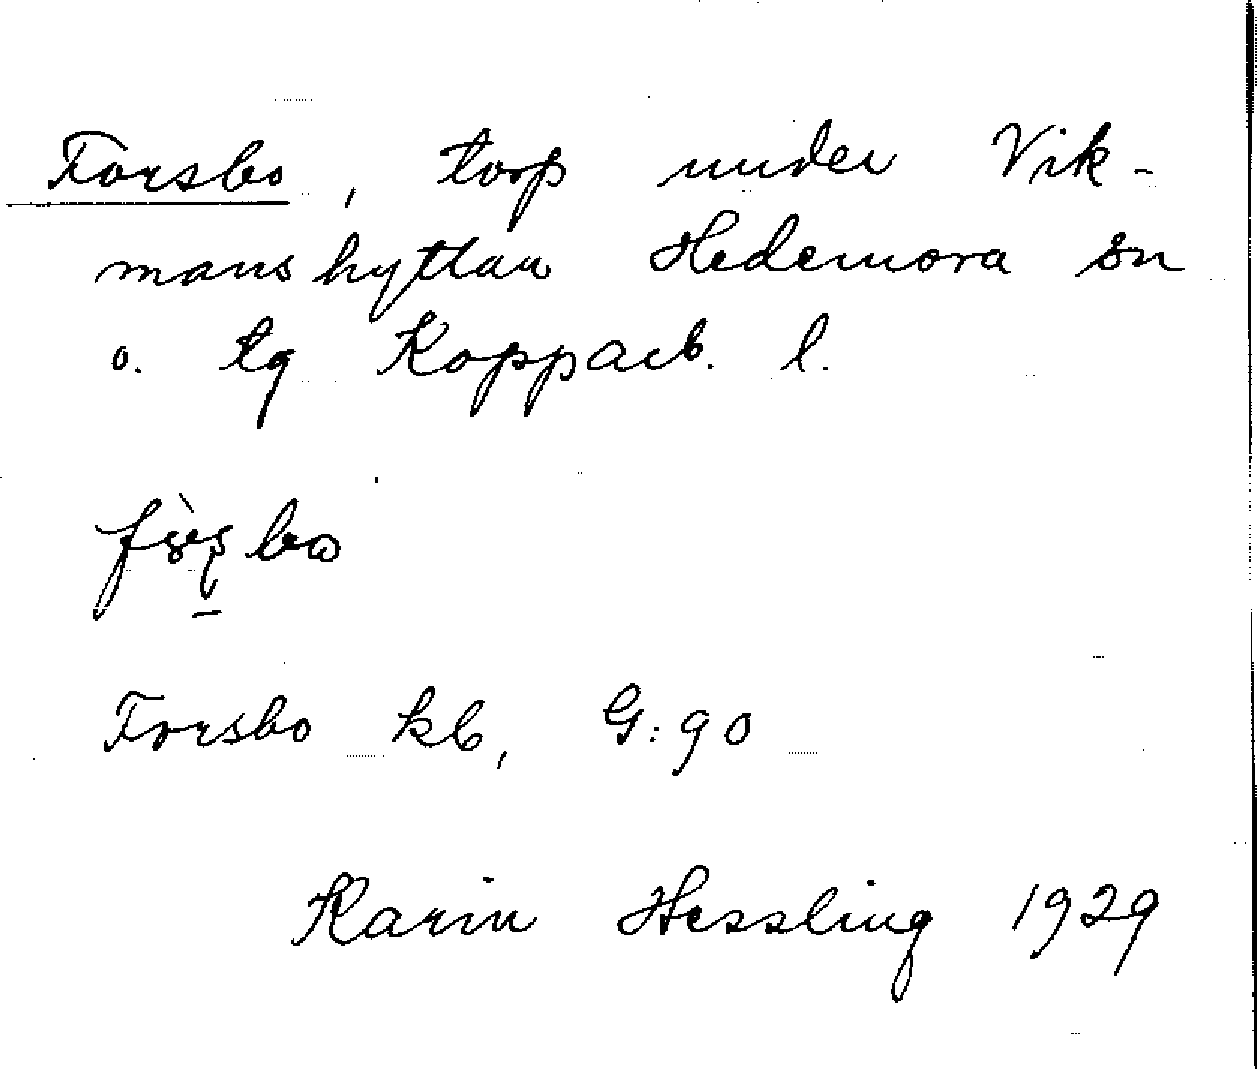 Forsbo, torp under Vik-
manshyttan Hedemora sn
o. tg Kopparb. l.
Forsbo kb, G:90
Karin Hessling 1929